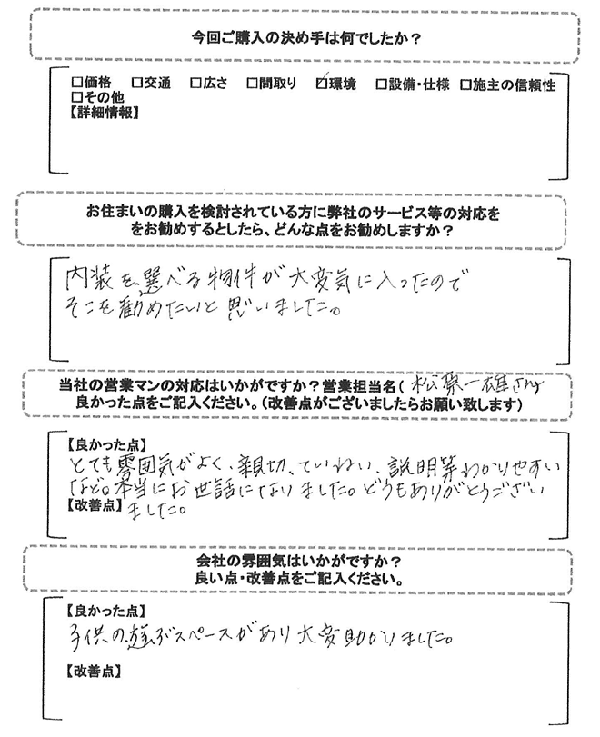 今回ご購入の決め手は何でしたか？
□価格 □交通 □広さ □間取り ☑環境 □設備・仕様 □施主の信頼性
□その他
【詳細情報】
お住まいの購入を検討されている方に弊社のサービス等の対応を
をお勧めするとしたら、どんな点をお勧めしますか？
内装を選べる物件が大変気に入ったので
そこを勧めたいと思いました。
当社の営業マンの対応はいかがですか？営業担当名( 松 一雄さん
良かった点をご記入ください。(改善点がございましたらお願い致します)
【良かった点】
とても雰囲気がよく、親切、ていねい、説明等わかりやすい
など。本当にお世話になりました。どうもありがとうござい
【改善点】ました。
会社の雰囲気はいかがですか？
良い点・改善点をご記入ください。
【良かった点】
子供の遊ぶスペースがあり大変助かりました。
【改善点】